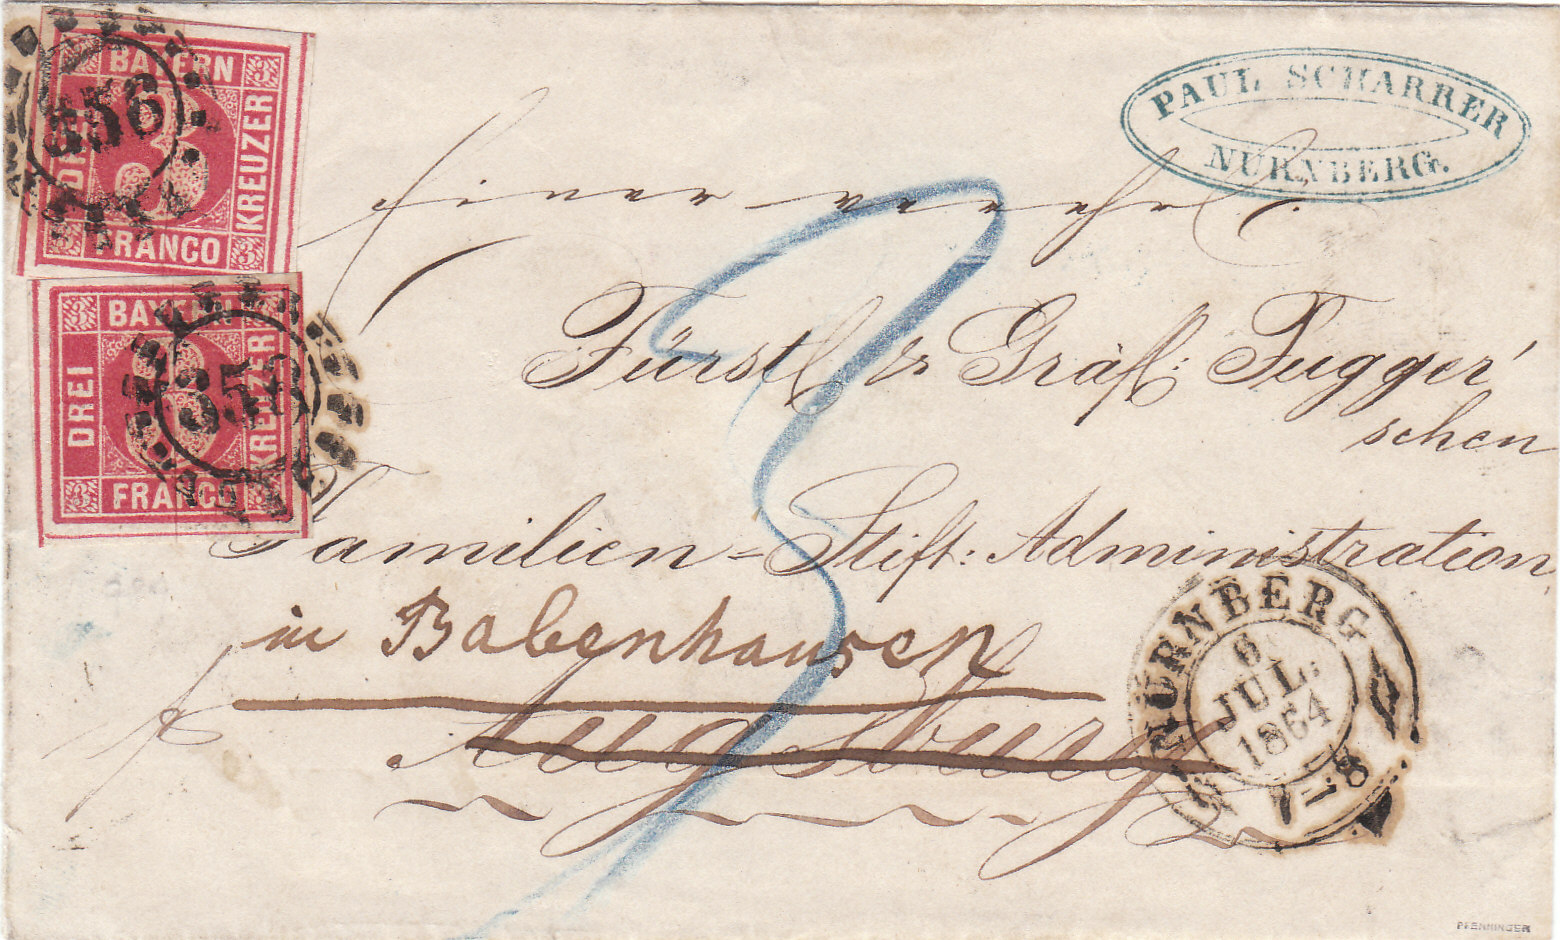 PAUL SCHARRER
NÜRNBERG.
BAYERN
DREI
KREUZER
FRANCO
3
3
3
356
BAYERN
DREI
KREUZER
FRANCO
3
3
3
356
Einer
3
Fürstl & Gräfl: Fugger'
schen
Familien = Stift: Administration
in Babenhausen
Augsburg
fr
NÜRNBERG
6
JUL.
1864
7–8
PFENNINGER